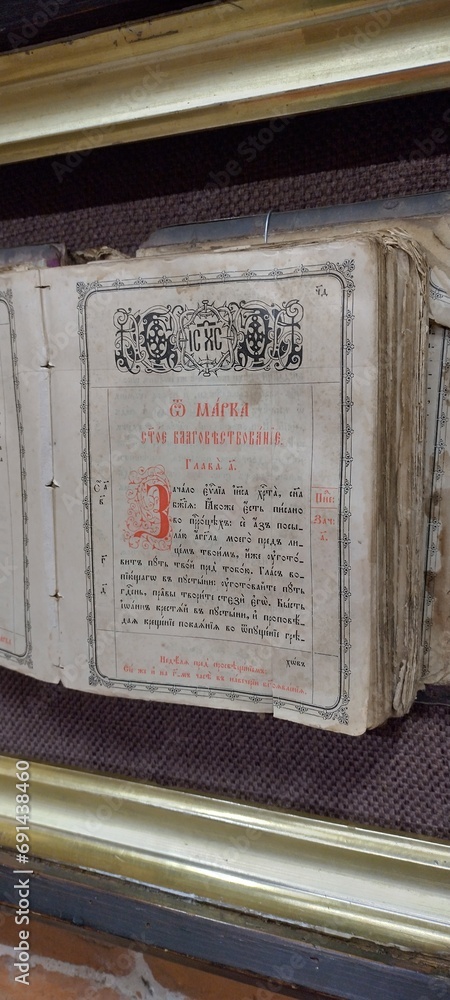 ч҃д
І҃С Х҃С
Ѿ МА́РКА
СТ҃О́Е БЛАГОВѢСТВОВА́НІЕ.
Глава̀ а҃.
Зача́ло є҆ѵⷢ҇лїа і҆и҃са хр҃та̀, сн҃а
бж҃їѧ: Ꙗ҆́коже є҆́сть пи́сано
во прⷪ҇ро́цѣхъ: сѐ а҆́зъ посы-
ла́ю а҆́гг҃ла моего̀ пред̾ ли-
це́мъ твои́мъ, и҆́же ᲂу҆гото́-
витъ пꙋ́ть тво́й пред̾ тобо́ю. Гла́съ во-
пїю́щагѡ въ пꙋсты́ни: ᲂу҆гото́вайте пꙋ́ть
гдⷭ҇ень, пра́вы твори́те стєзѝ є҆гѡ̀. Бы́сть
і҆ѡа́ннъ крестѧ́й въ пꙋсты́ни, и҆ проповѣ́-
даѧ кр҃ще́нїе покаѧ́нїѧ во ѿпꙋще́нїе грѣ-
Зач:
а҃.
Недѣ́лѧ пред̾ просвѣще́нїемъ.
Adobe Stock | #691438460